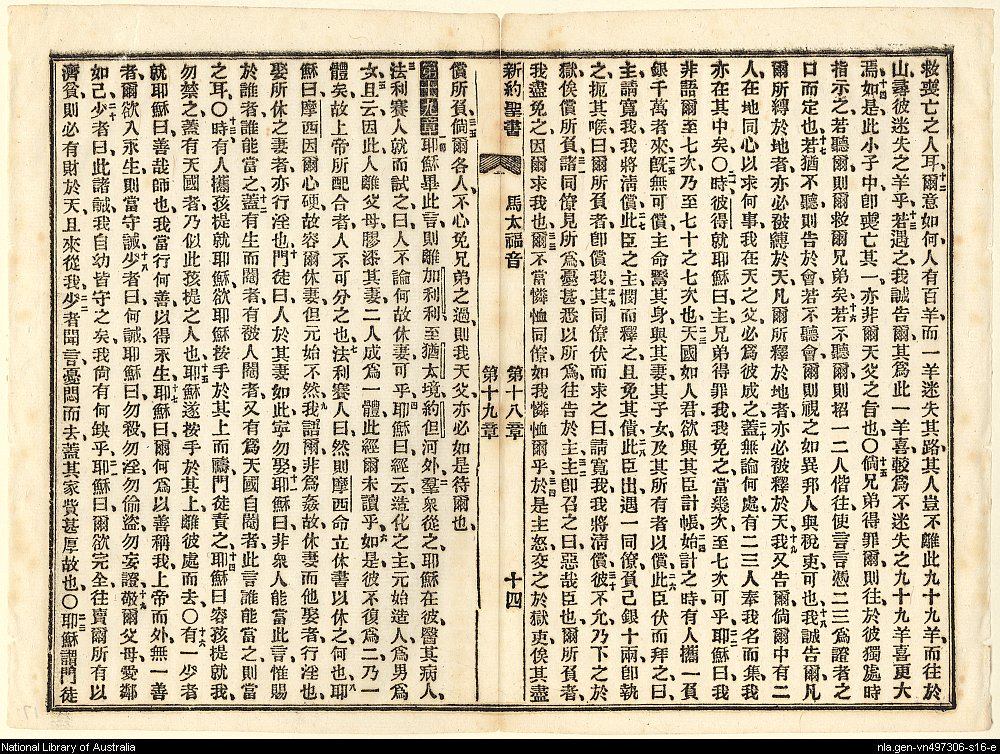 救喪亡之人耳爾意如何人有百羊而一羊迷失其路其人豈不離此九十九羊而往於
山尋彼迷失之羊乎若遇之我誠告爾其爲此一羊喜較爲不迷失之九十九羊喜更大
焉如是此小子中卽喪亡其一亦非爾天父之旨也〇倘兄弟得罪爾則往於彼獨處時
指示之若聽爾則爾救爾兄弟矣若不聽爾則招一二人偕往使言言憑二三爲證者之
口而定也若猶不聽則告於會若不聽會爾則視之如異邦人與稅吏可也我誠告爾凡
爾所縛於地者亦必被縛於天凡爾所釋於地者亦必被釋於天我又告爾倘爾中有二
人在地同心以求何事我在天之父必爲彼成之蓋無論何處有二三人奉我名而集我
亦在其中矣〇時彼得就耶穌曰主兄弟得罪我我免之當幾次至七次可乎耶穌曰我
非語爾至七次乃至七十之七次也天國如人君欲與其臣計帳始計之時有人攜一負
銀千萬者來旣無可償主命鬻其身與其妻其子女及其所有者以償此臣伏而拜之曰
主請寬我我將清償此臣之主憫而釋之且免其債此臣出遇一同僚負己銀十兩卽執
之扼其喉曰爾所負者卽償我其同僚伏而求之曰請寬我我將清償彼不允乃下之於
獄俟償所負諸同僚見所爲憂甚悉以所爲往告於主主卽召之曰惡哉臣也爾所負者
我盡免之因爾求我也爾不當憐恤同僚如我憐恤爾乎於是主怒交之於獄吏俟其盡
新約聖書 馬太福音 第十八章 第十九章 十四
償所負倘爾各人不心免兄弟之過則我天父亦必如是待爾也
第十九章耶穌畢此言則離加利利至猶太境約但河外羣衆從之耶穌在彼醫其病人
法利賽人就而試之曰人不論何故休妻可乎耶穌曰經云造化之主元始造人爲男爲
女且云因此人離父母膠漆其妻二人成爲一體此經爾未讀乎如是彼不復爲二乃一
體矣故上帝所配合者人不可分之也法利賽人曰然則摩西命立休書以休之何也耶
穌曰摩西因爾心硬故容爾休妻但元始不然我語爾非爲姦故休妻而他娶者行淫也
娶所休之妻者亦行淫也門徒曰人於其妻如此寧勿娶耶穌曰非衆人能當此言惟賜
於誰者誰能當之蓋有生而閹者有被人閹者又有爲天國自閹者此言誰能當之則當
之耳〇時有人攜孩提就耶穌欲耶穌按手於其上而禱門徒責之耶穌曰容孩提就我
勿禁之蓋有天國者乃似此孩提之人也耶穌遂按手於其上離彼處而去〇有一少者
就耶穌曰善哉師也我當行何善以得永生耶穌曰爾何爲以善稱我上帝而外無一善
者爾欲入永生則當守誡少者曰何誡耶穌曰勿殺勿淫勿偷盜勿妄證敬爾父母愛鄰
如己少者曰此諸誡我自幼皆守之矣我尙有何缺乎耶穌曰爾欲完全往賣爾所有以
濟貧則必有財於天且來從我少者聞言憂悶而去蓋其家貲甚厚故也〇耶穌謂門徒
National Library of Australia
nla.gen-vn497306-s16-e